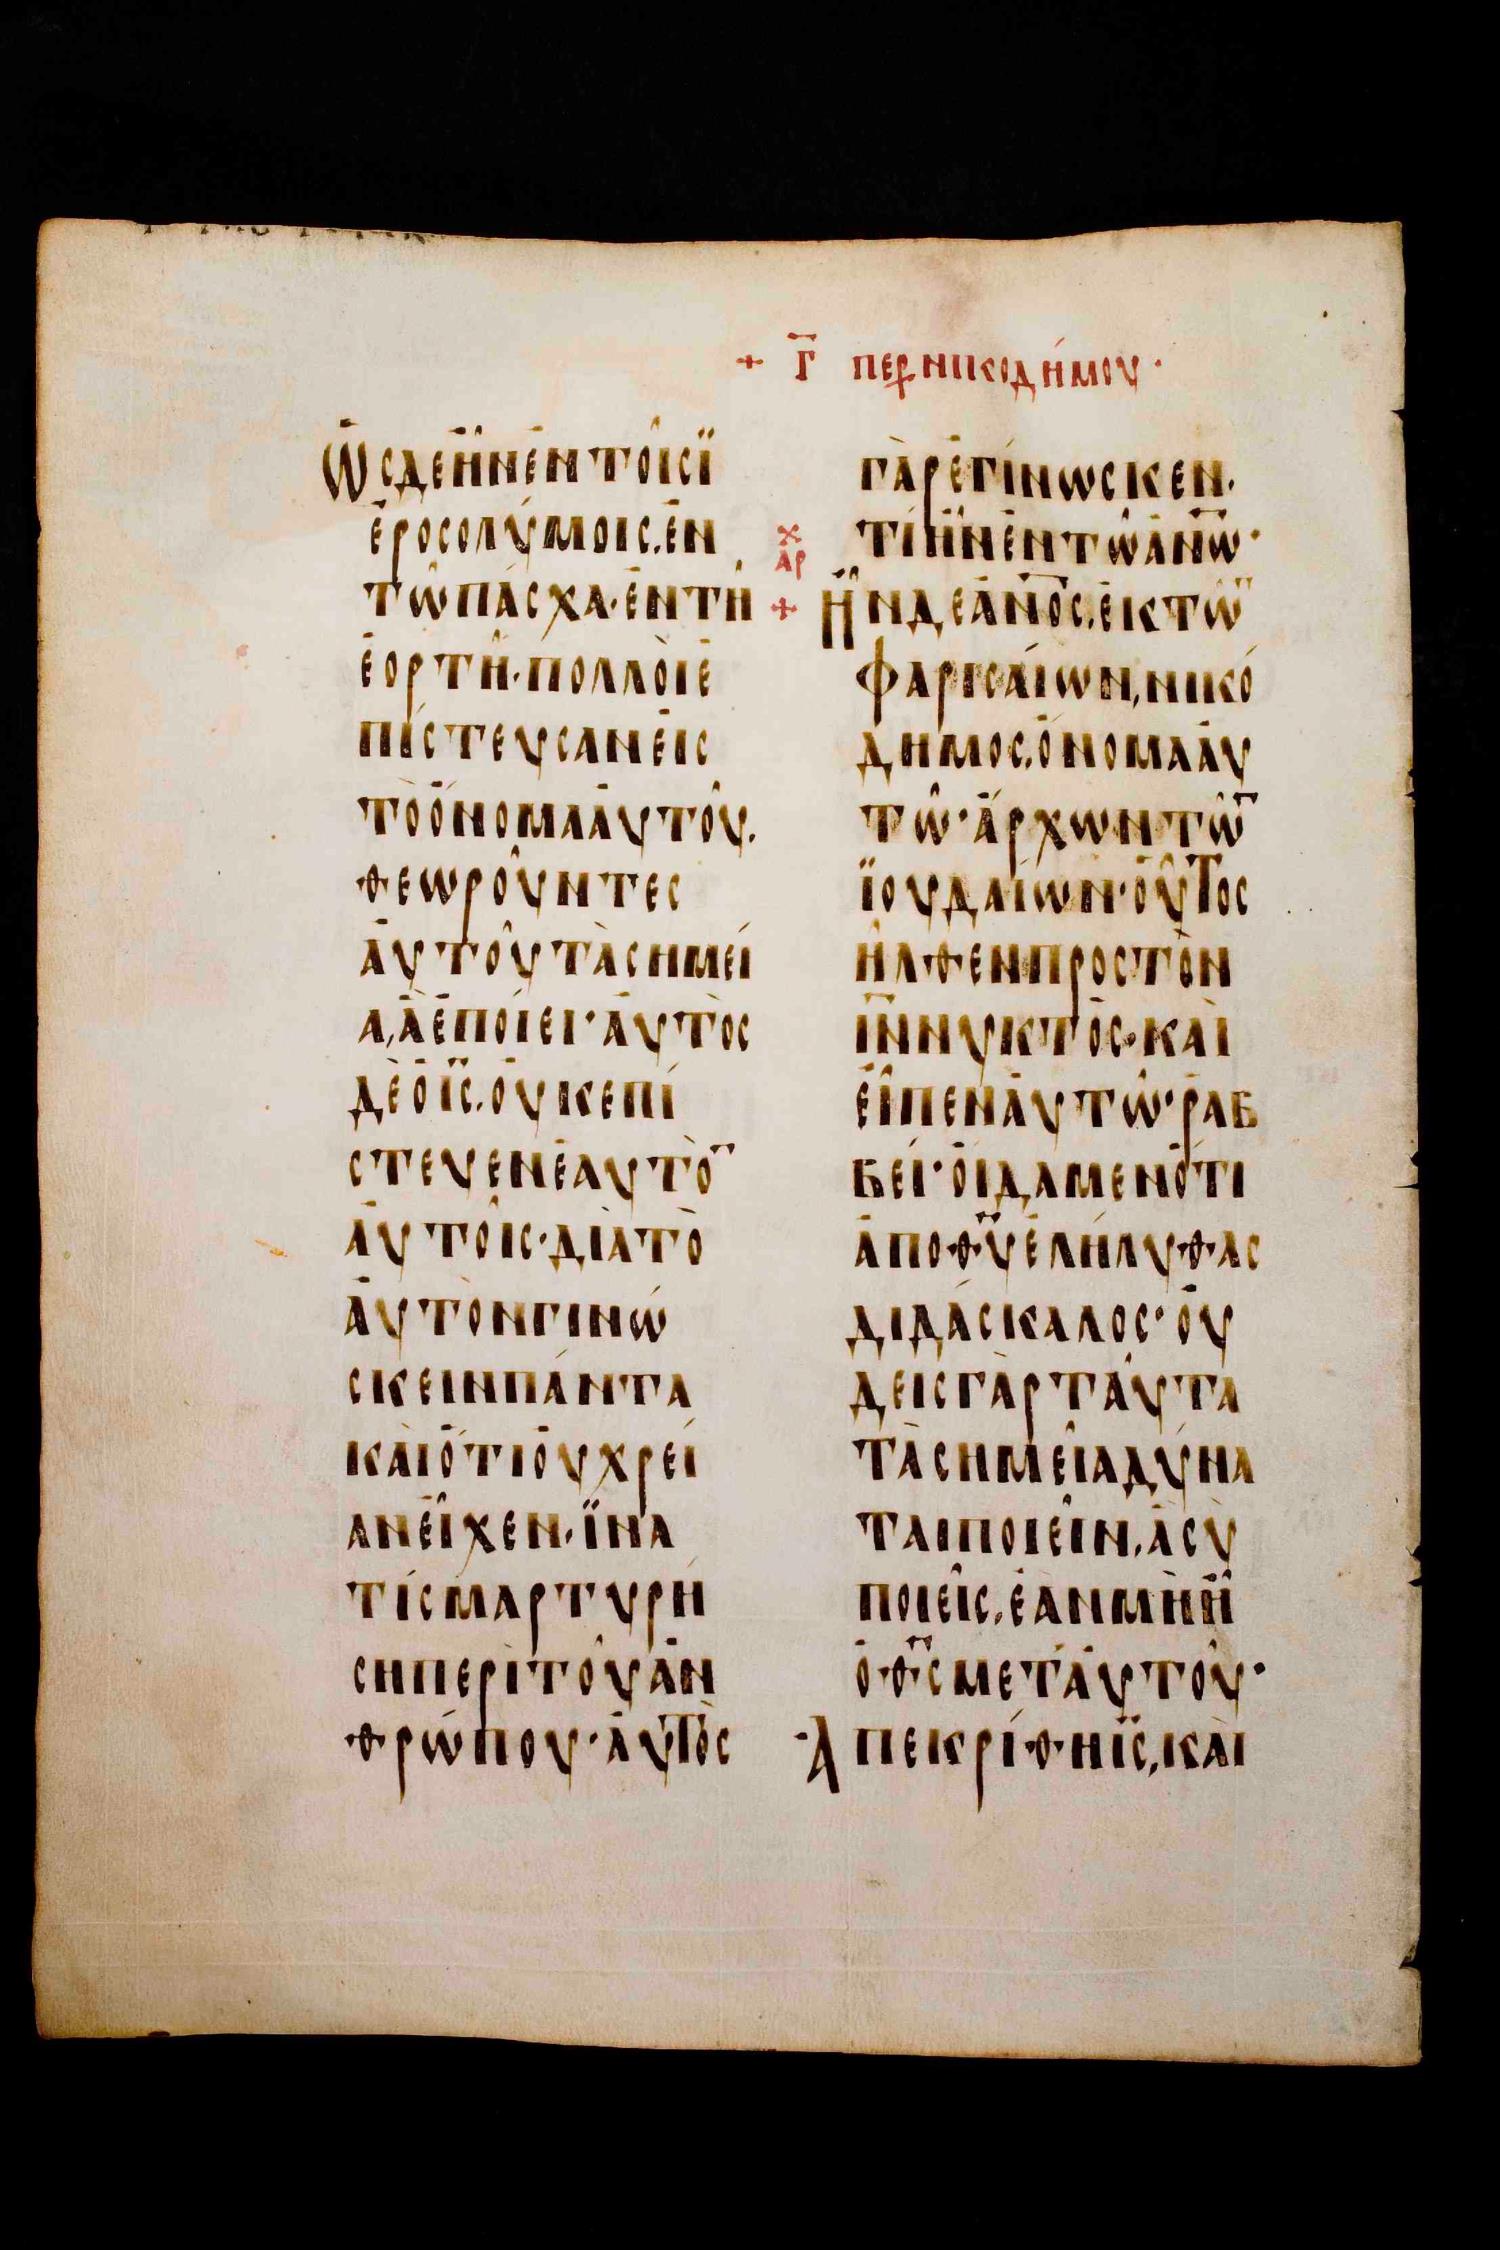 + Γ̅ περὶ νικοδήμου·
Ὡς δὲ ἦν ἐν τοῖς ἱ
εροσολύμοις, ἐν
τῶ πάσχα· ἐν τῆ
ἑορτῆ· πολλοὶ ἐ
πίστευσαν εἰς
τὸ ὄνομα αὐτοῦ.
θεωροῦντες
αὐτοῦ τὰ σημεῖ
α, ἃ ἐποίει· αὐτὸς
δὲ ὁ ι̅ς̅, οὐκ ἐπί
στευεν ἑαυτὸ̅
αὐτοῖς· διὰ τὸ
αὐτὸν γινώ
σκειν πάντα
καὶ ὅτι οὐ χρεί
αν εἶχεν· ἵνα
τίς μαρτυρή
ση περὶ τοῦ ἀν
θρώπου· αὐτὸς
γὰρ ἐγίνωσκεν·
τί ἦν ἐν τῶ ἀ̅ν̅ω̅·
χ
αρ
+ Ἦν δὲ ἀ̅ν̅ο̅ς̅, ἐκ τῶ̅
φαρισαίων, νικό
δημος, ὄνομα αὐ
τῶ· ἄρχων τῶ̅
ἰουδαίων· οὗτος
ἦλθεν πρὸς τὸν
ι̅ν̅ νυκτὸς· καὶ
εἶπεν αὐτῶ· ῥαβ
βεί· οἴδαμεν ὅτι
ἀπὸ θ̅υ̅ ἐλήλυθας
διδάσκαλος· οὐ
δεὶς γὰρ ταῦτα
τὰ σημεῖα δύνα
ται ποιεῖν, ἃ σὺ
ποιεῖς, ἐὰν μὴ ἦ
ὁ θ̅ς̅ μετ' αὐτοῦ·
Ἀπεκρίθη ι̅ς̅, καὶ